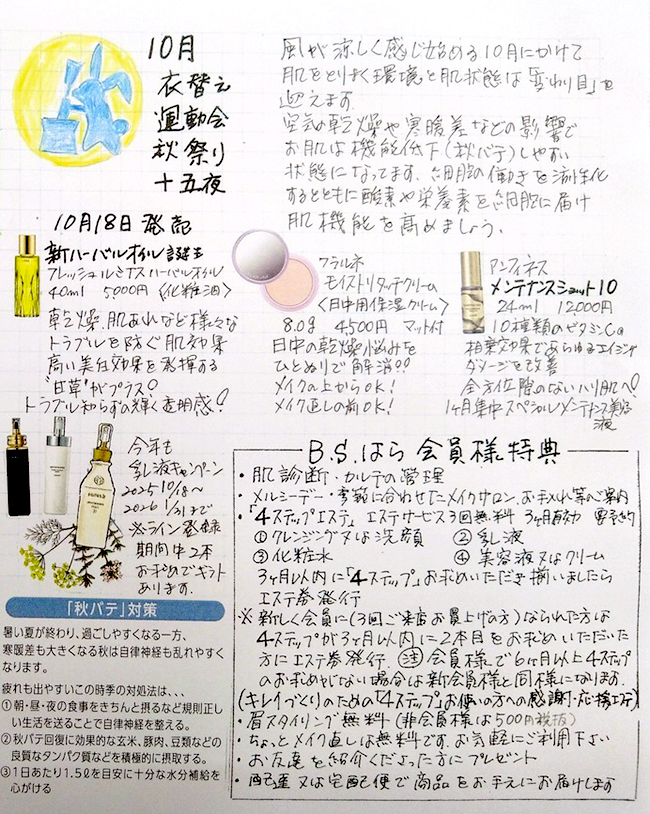 10月
衣替え
運動会
秋祭り
十五夜
風が涼しく感じ始める10月にかけて
肌をとりまく環境と肌状態は「変わり目」を
迎えます。
空気の乾燥や寒暖差などの影響で
お肌は機能低下(秋バテ)しやすい
状態になってます。細胞の働きを活性化
するとともに酸素や栄養素を細胞に届け
肌機能を高めましょう。
10月18日発売
新ハーバルオイル誕生
フレッシュルミナス ハーバルオイル
40ml 5,000円〈化粧油〉
乾燥、肌あれなど様々な
トラブルを防ぐ肌効果
高い美白効果を発揮する
"甘草"がプラス!
トラブル知らずの輝く透明感!
クラルネ
モイストリタッチクリーム
〈日中用保湿クリーム〉
8.0g 4,500円 マット付
日中の乾燥悩みを
ひとぬりで解消!!
メイクの上からOK!
メイク直しの前OK!
アンフィネス
メンテナンスショット10
24ml 12,000円
10種類のビタミンCの
相乗効果であらゆるエイジング
ダメージを改善
全方位隙のないハリ肌へ!
1ヶ月集中スペシャルメンテナンス美容
液
今年も
乳液キャンペーン
2025 10/18〜
2026 1/31まで
※ライン登録
期間中2本
お求めでギフト
あります。
「秋バテ」対策
暑い夏が終わり、過ごしやすくなる一方、
寒暖差も大きくなる秋は自律神経も乱れやすく
なります。
疲れも出やすいこの時季の対処法は、、、
①朝・昼・夜の食事をきちんと摂るなど規則正し
い生活を送ることで自律神経を整える。
②秋バテ回復に効果的な玄米、豚肉、豆類などの
良質なタンパク質などを積極的に摂取する。
③1日あたり1.5ℓを目安に十分な水分補給を
心がける
B.S.はら 会員様特典
・肌診断・カルテの管理
・メルシーデー・季節に合わせたメイクサロン、お手入れ等ご案内
・「4ステップエステ」エステサービス3回無料 3ヶ月有効 要予約
①クレンジング又は洗顔 ②乳液
③化粧水 ④美容液又はクリーム
3ヶ月以内に「4ステップ」お求めいただき揃いましたら
エステ券発行
※新しく会員に(3回ご来店お買上げの方)なられた方は
4ステップが3ヶ月以内に2本目をお求めいただいた
方にエステ券発行. 注 会員様で6ヶ月以上4ステップ
のお求めがない場合は新会員様と同様になります.
(キレイづくりのための「4ステップ」お使いの方への感謝・応援エステ)
・眉スタイリング無料(非会員様は500円税抜)
・ちょっとメイク直しは無料です。お気軽にご利用下さい
・お友達を紹介くださった方にプレゼント
・配達又は宅配便で商品をお手元にお届けします